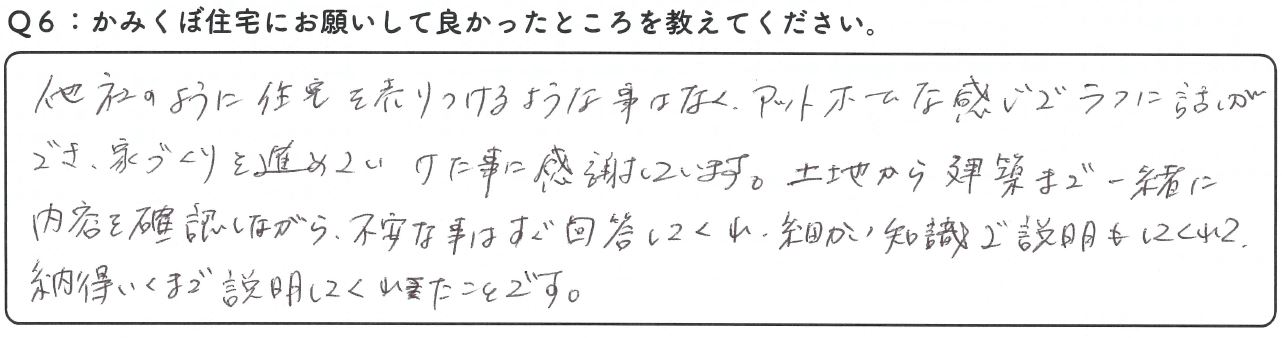 Q6：かみくぼ住宅にお願いして良かったところを教えてください。
他社のように住宅を売りつけるような事はなく、アットホームな感じでラフに話しが
でき、家づくりを進めていけた事に感謝しています。土地から建築まで一緒に
内容を確認しながら、不安な事はすぐ回答してくれ、細かい知識で説明もしてくれて、
納得いくまで説明してくれたことです。